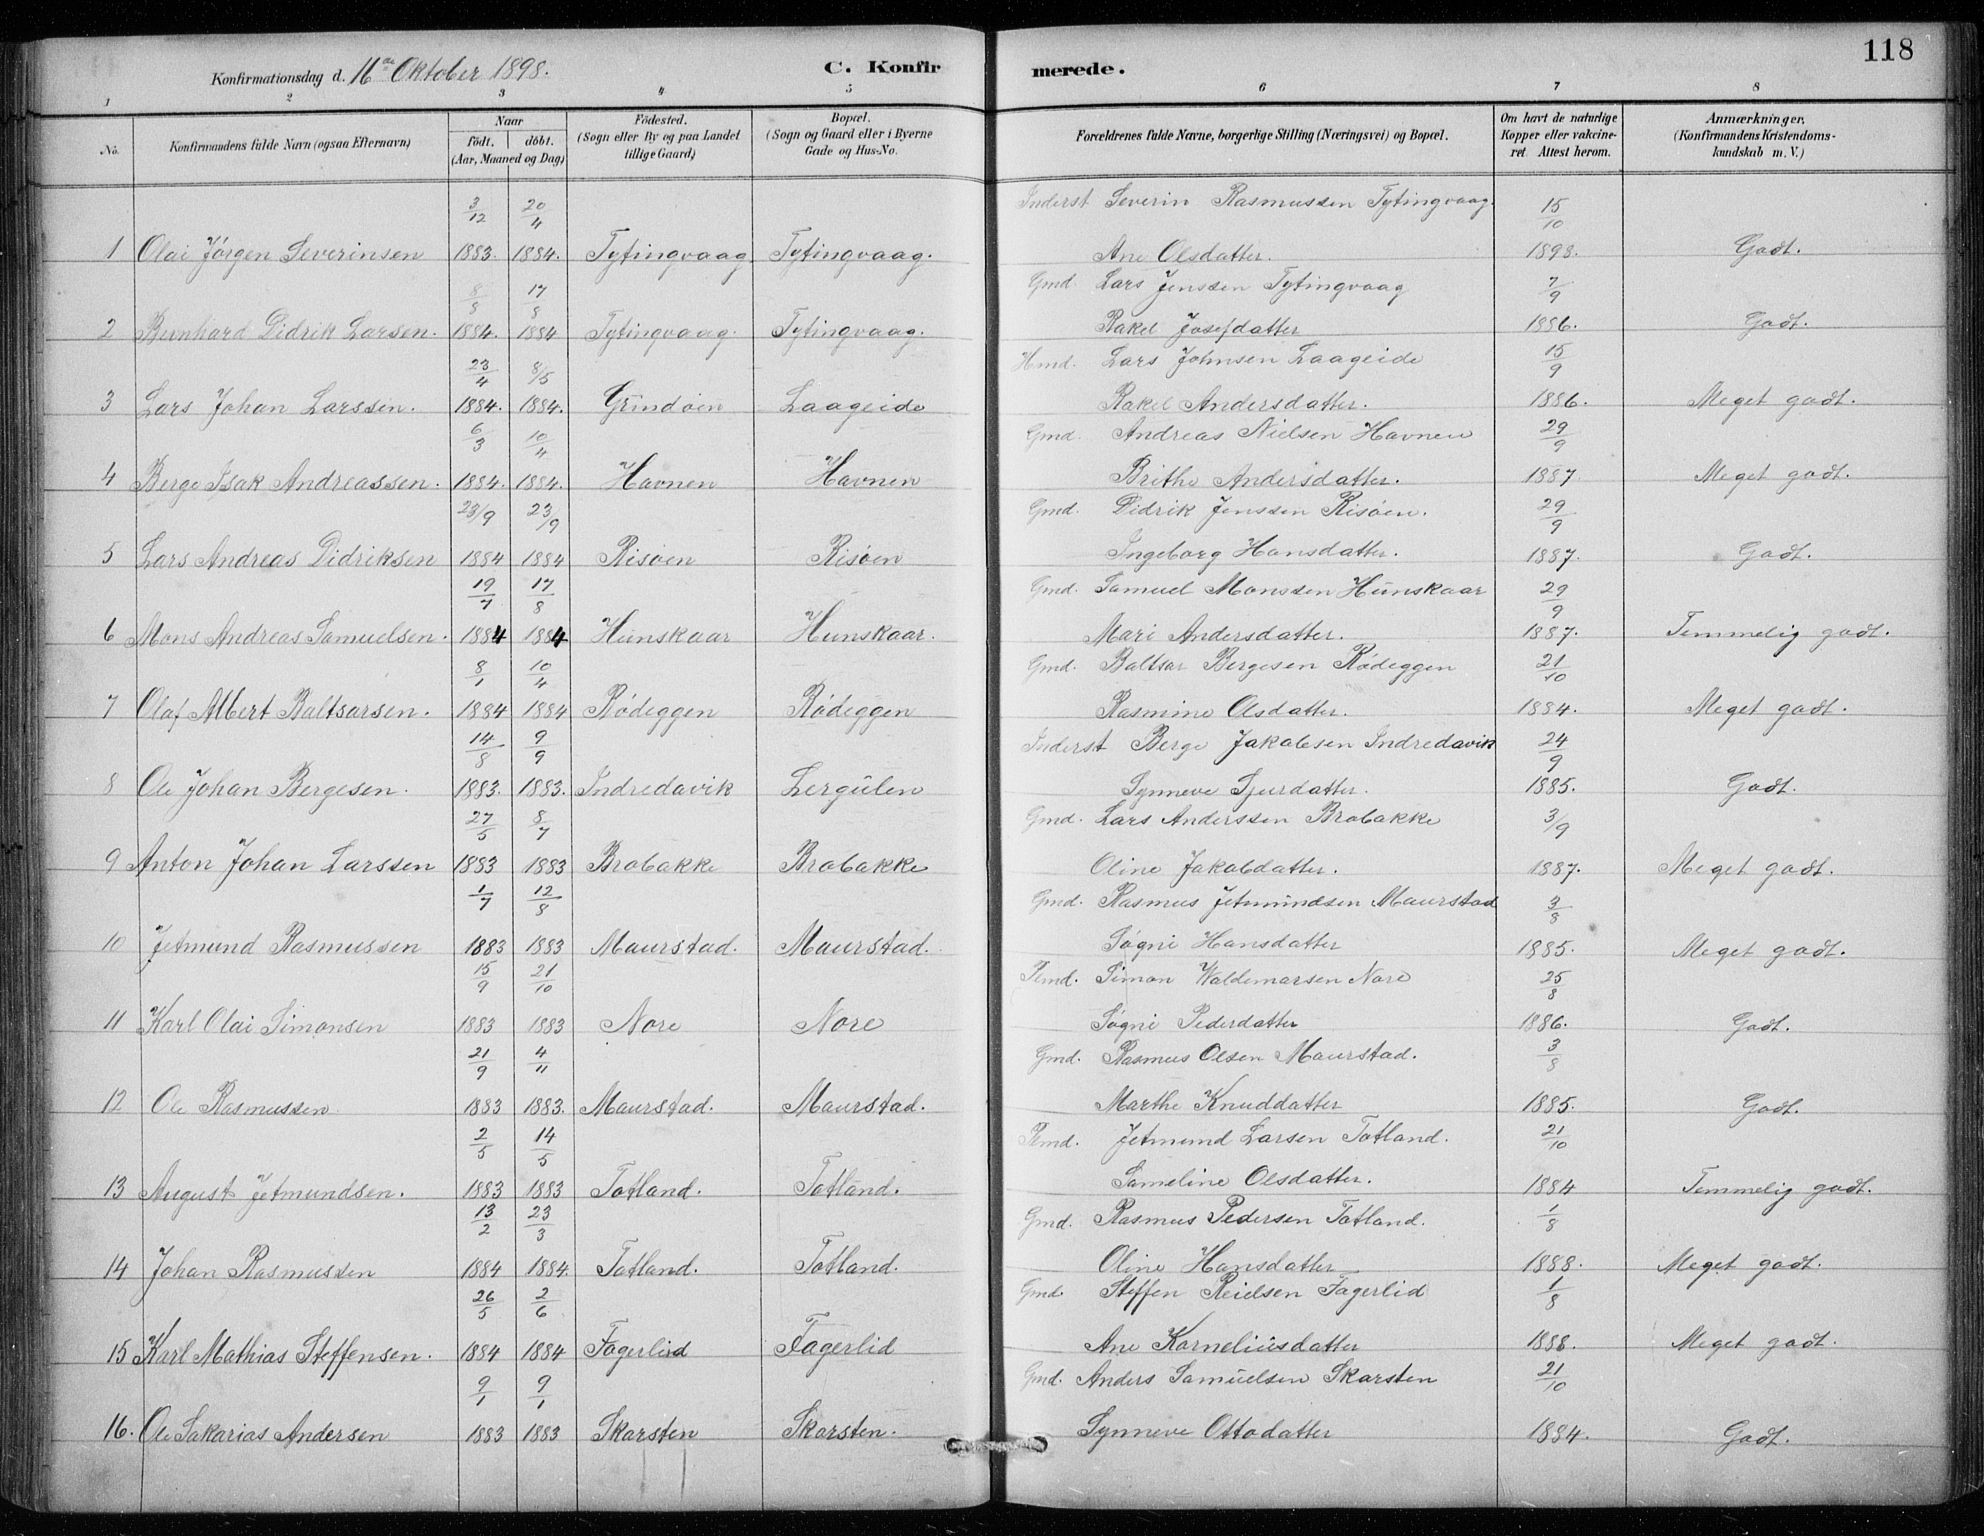 118
Konfirmationsdag d. 16de Oktober 1898.
C. Konfirmerede.
1 2 3 4 5 6 7 8
No.
Konfirmandens fulde Navn (ogsaa Efternavn)
Naar
født. døbt.
(Aar, Maaned og Dag)
Fødested.
(Sogn eller By og paa Landet
tillige Gaard)
Bopæl.
(Sogn og Gaard eller i Byerne
Gade og Hus-No.
Forældrenes fulde Navne, borgerlige Stilling (Næringsvei) og Bopæl.
Om havt de naturlige
Kopper eller vakcine-
ret Attest herom.
Anmærkninger.
(Konfirmandens Kristendoms-
kundskab m. V.)
3/12 20/4 Inderst Severin Rasmussen Tytingvaag. 15/10
1 Olai Jørgen Severinsen 1883. 1884. Tytingvaag Tytingvaag. Ane Olsdatter. 1898. Godt.
8/8 17/8 Gmd. Lars Jenssen Tytingvaag 7/9
2 Bernhard Didrik Larsen. 1884. 1884 Tytingvaag. Tytingvaag. Rakel Josefdatter 1886. Godt.
23/4 8/5 Hmd. Lars Johnsen Laageide 15/9
3 Lars Johan Larssen. 1884. 1884. Grindøen Laageide Rakel Andersdatter. 1886. Meget godt.
6/3 10/4 Gmd. Andreas Nielsen Havnen 29/9
4 Berge Isak Andreassen. 1884. 1884. Havnen Havnen Brithe Andersdatter. 1887. Meget godt.
23/9 23/9 Gmd. Didrik Jenssen Risøen. 29/9
5 Lars Andreas Didriksen 1884 1884 Risøen Risøen Ingeborg Hansdatter. 1887. Godt.
19/7 17/8 Gmd. Samuel Monssen Hunskaar 29/9
6 Mons Andreas Samuelsen. 1884 1884 Hunskaar Hunskaar. Mari Andersdatter. 1887. Temmelig godt.
8/1 10/4 Gmd. Baltsar Bergesen Rødeggen 21/10
7 Olaf Albert Baltsarsen. 1884 1884 Rødeggen Rødeggen Rasmine Olsdatter. 1884. Meget godt.
14/8 9/9 Inderst Berge Jakobsen Indredavik 24/9
8 Ole Johan Bergesen. 1883. 1883. Indredavik Lergulen Synneve Sjurdatter. 1885. Godt.
27/5 8/7 Gmd. Lars Anderssen Brobakke 3/9
9 Anton Johan Larssen 1883 1883 Brobakke Brobakke Oline Jakobdatter. 1887. Meget godt.
1/7 12/8 Gmd. Rasmus Jetmundsen Maurstad 3/8
10 Jetmund Rasmussen 1883 1883 Maurstad. Maurstad. Søgni Hansdatter 1885. Meget godt.
15/9 21/10 Fmd. Simon Waldemarsen Nore 25/8
11 Karl Olai Simonsen 1883 1883 Nore Nore Søgni Pedersdatter 1886. Godt.
21/9 4/11 Gmd. Rasmus Olsen Maurstad. 3/8
12 Ole Rasmussen 1883 1883. Maurstad. Maurstad. Marthe Knuddatter 1885. Godt.
2/5 14/5 Fmd. Jetmund Larsen Totland. 21/10
13 August Jetmundsen. 1883 1883 Totland. Totland. Sameline Olsdatter. 1884 Temmelig godt.
13/2 23/3 Gmd. Rasmus Pedersen Totland. 1/8
14 Johan Rasmussen 1884 1884. Totland. Totland. Oline Hansdatter 1888. Meget godt.
26/5 2/6 Gmd. Steffen Reielsen Fagerlid 1/8
15 Karl Mathias Steffensen. 1884 1884 Fagerlid Fagerlid Ane Korneliusdatter 1888. Meget godt.
9/1 9/1 Gmd. Anders Samuelsen Skarsten 21/10
16. Ole Sakarias Andersen 1883 1883 Skarsten Skarsten. Synneve Ottodatter 1884. Godt.